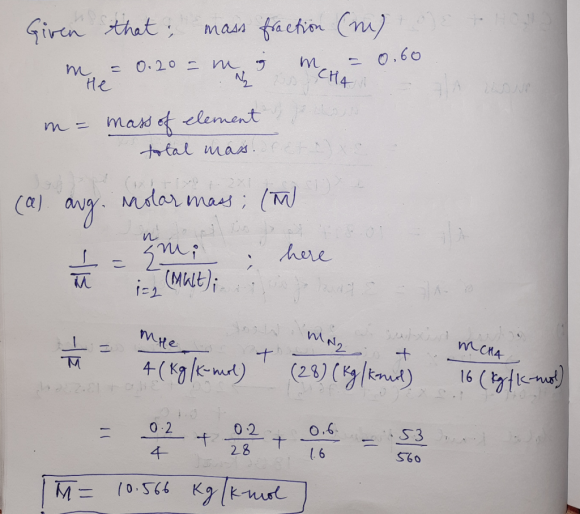 Given that ; mass fraction (m)
m_He = 0.20 = m_N2 ; m_CH4 = 0.60
m = mass of element / total mass.
(a) avg. Molar mass ; (M̅)
1/M̅ = Σ_{i=1}^{n} m_i / (MWt)_i ; here
1/M̅ = m_He / 4 (Kg/K-mol) + m_N2 / (28) (Kg/Kmol) + m_CH4 / 16 (Kg/K-mol)
= 0.2/4 + 0.2/28 + 0.6/16 = 53/560
M̅ = 10.566 Kg/K-mol